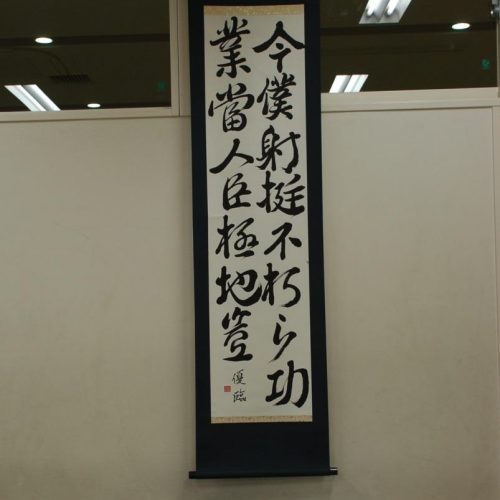 今僕射挺不朽之功
業當人臣極地豈
優臨